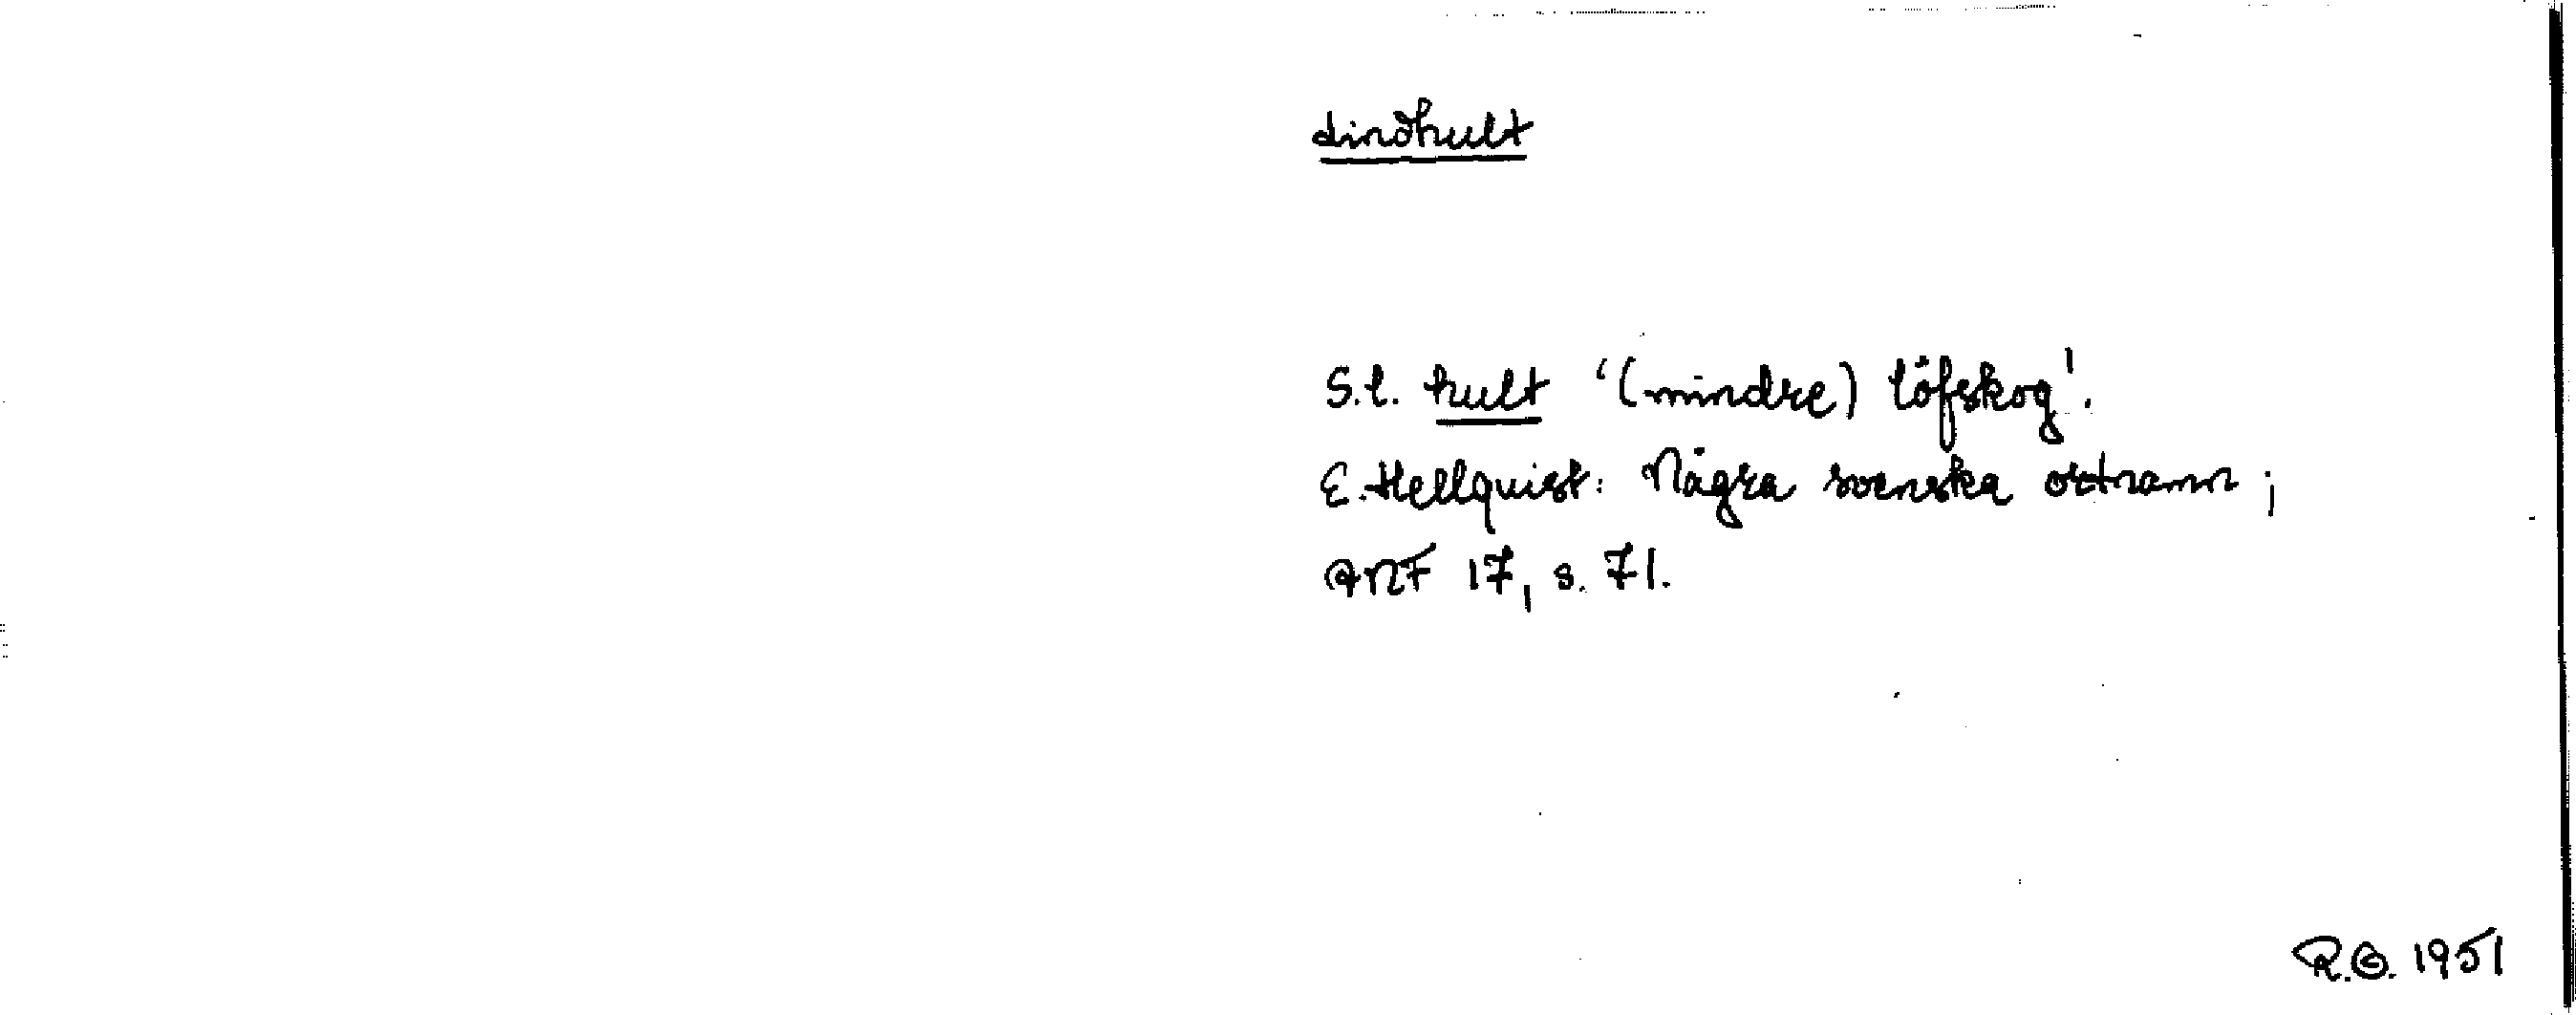 Lindhult
S.l. hult '(mindre) löfskog'.
E. Hellquist: Några svenska ortnamn;
ANF 17, s. 71.
R.G. 1951